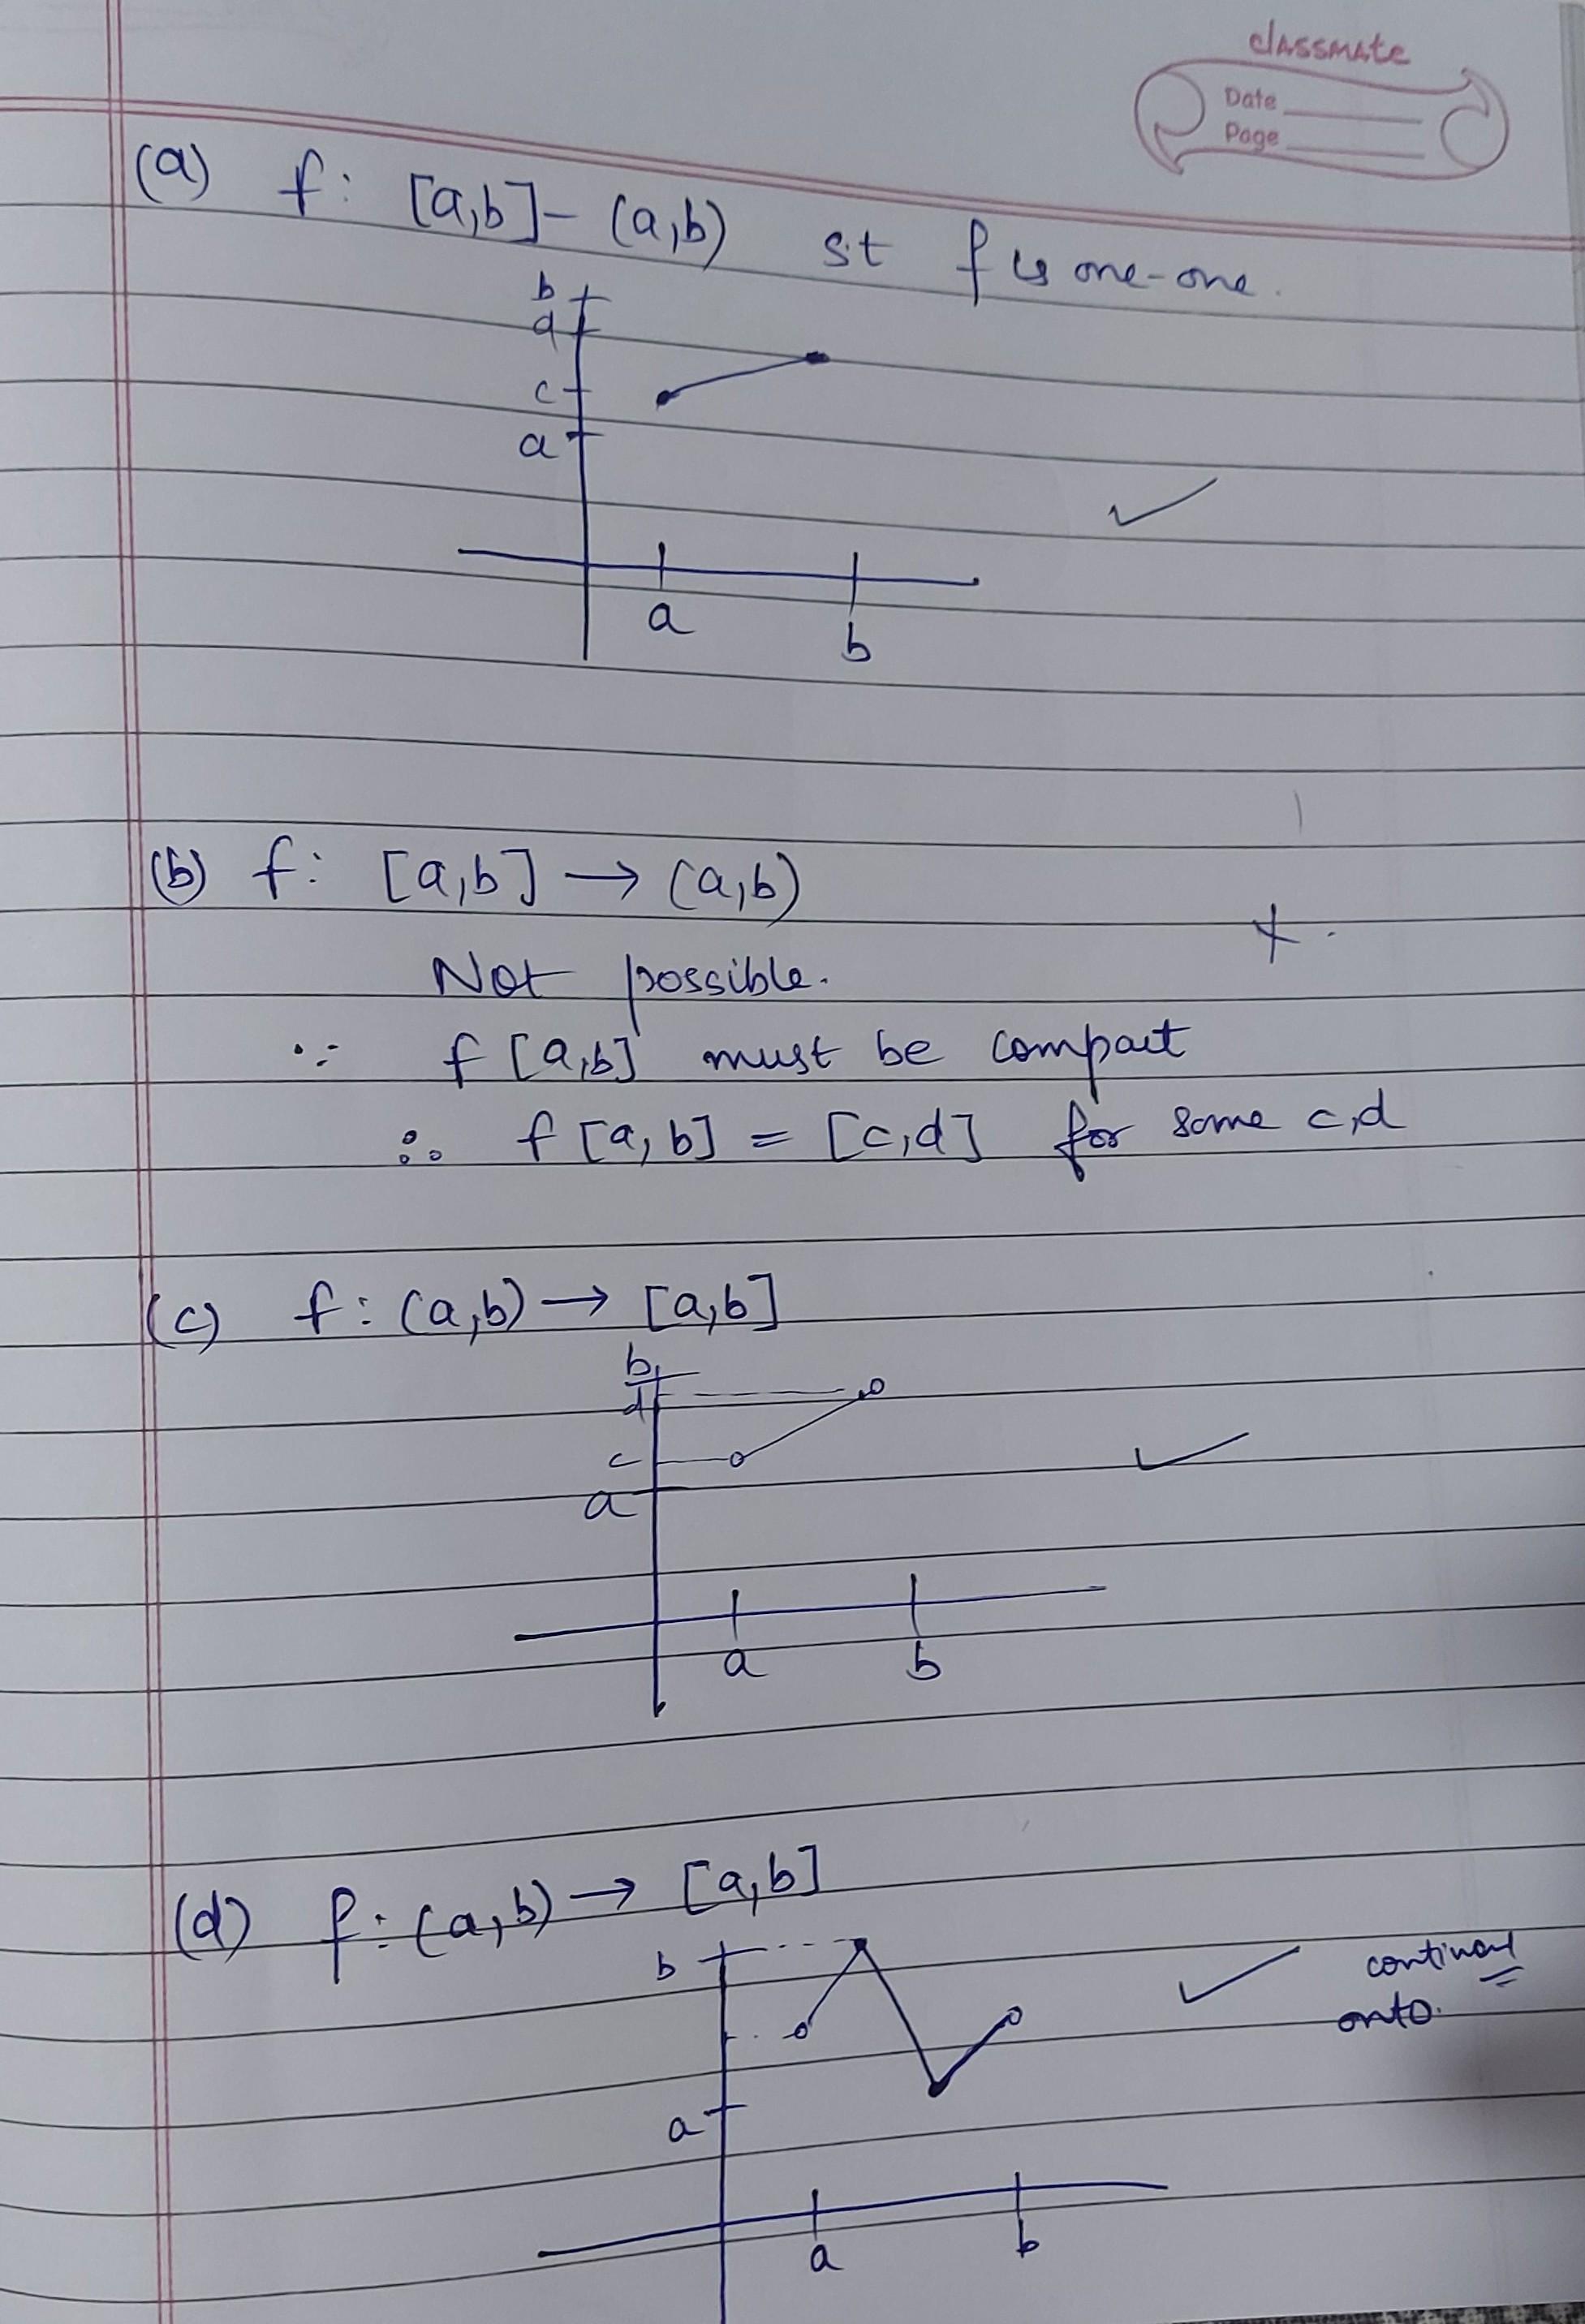 classmate
Date
Page
(a) f: [a,b]- (a,b) s.t f is one-one.
b
d
c
a
a
b
(b) f: [a,b] → (a,b)
Not possible.
∵ f [a,b] must be compact
∴ f [a,b] = [c,d] for some c,d
(c) f: (a,b) → [a,b]
b
d
c
a
a
b
(d) f: (a,b) → [a,b]
b
a
a
b
onto.